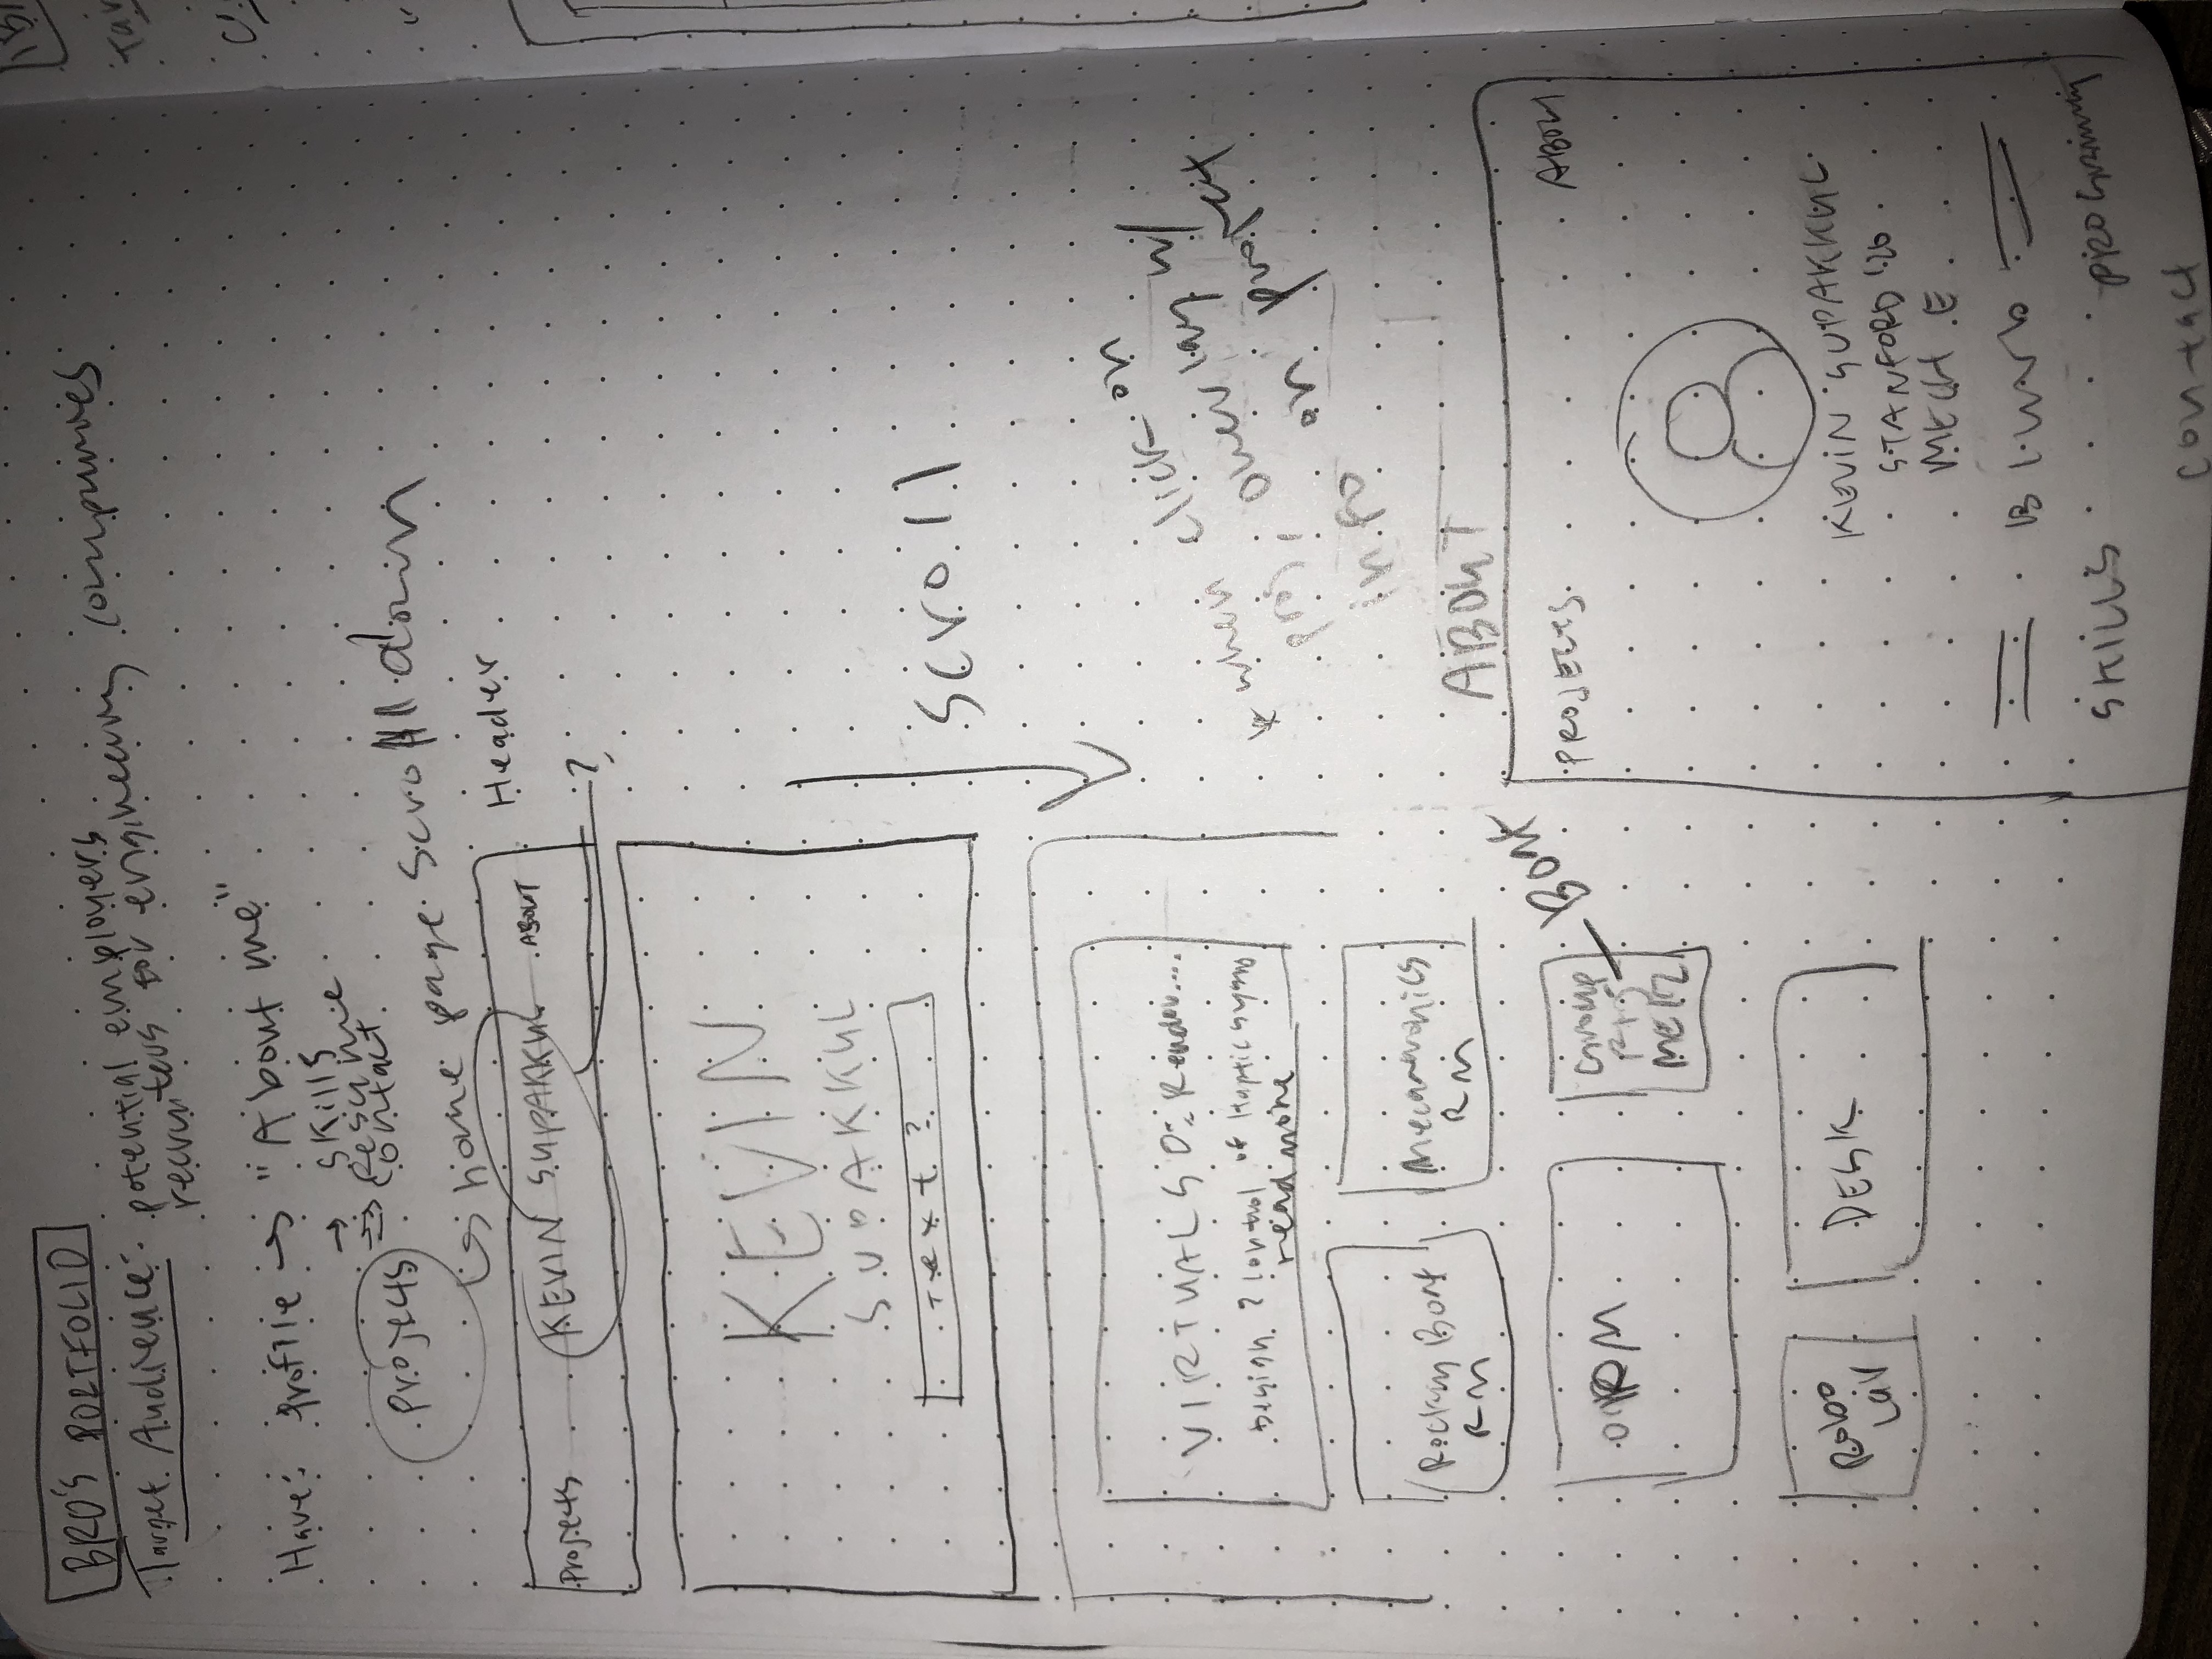 BRO'S PORTFOLIO
Target Audience: potential employers
recruiters for engineering companies
Have: Profile → "About me"
→ Skills
⇒ Resume
⇒ contact
Projects
↳ home page scroll down
Projects KEVIN SUPAKKUL ABOUT
Header
?
KEVIN
SUPAKKUL
Text?
Scroll
VIRTUAL
Design & control of Haptic
read more
* when click on
proj, overlay w/
info on project
Rocking Boat
RM
Mechatronics
RM
Group
ME12
Boat
Robo
DESK
ABOUT
PROJECTS ABOUT
KEVIN SUPAKKUL
STANFORD '20
MECH E
Blurb
SKILLS Programming
contact